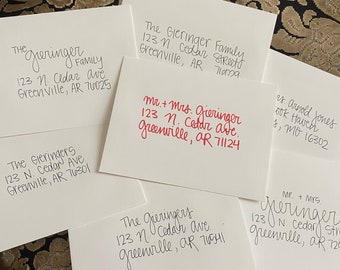 The
Gieringer
Family
123 N. Cedar Ave
Greenville, AR 72025
The Gieringer Family
123 N Cedar Street
Greenville, AR
Mr. + Mrs. Gieringer
123 N. Cedar Ave.
Greenville, AR 71124
Arnold Jones
MO 16302
The Gieringers
123 N Cedar Ave
Greenville, AR 76301
Mr + Mrs
Gieringer
123 N Cedar
Greenville, AR
The Gieringers
123 N Cedar Ave
greenville, AR